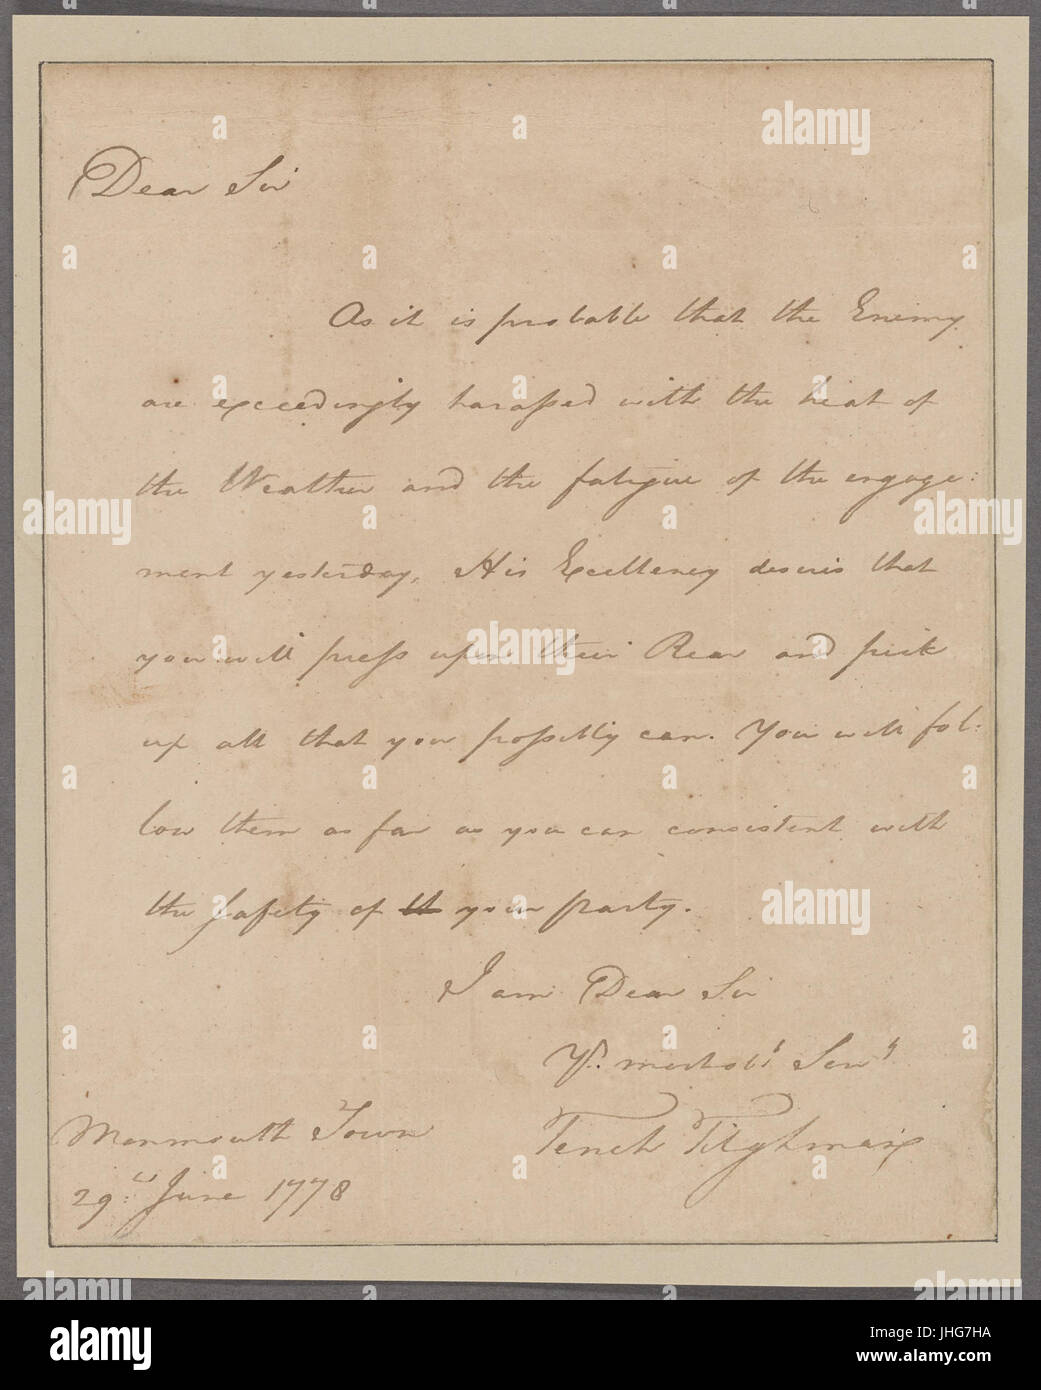 Dear Sir
As it is probable that the Enemy
are exceedingly harassed with the heat of
the Weather and the fatigue of the engage:
ment yesterday, His Excellency desires that
you will press upon their Rear and pick
up all that you possibly can. You will fol:
low them as far as you can consistent with
the safety of th your party.
I am Dear Sir
Yr. most obt Servt
Tench Tilghman
Monmouth Town
29th June 1778
alamy stock photo
alamy
Image ID: JHG7HA
www.alamy.com